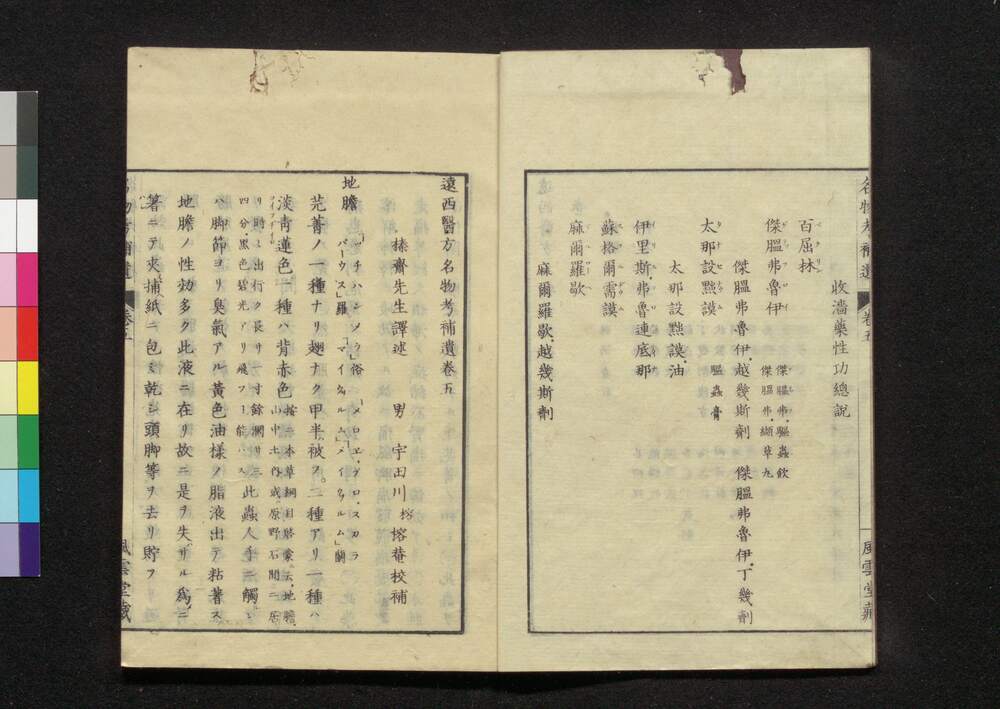 收濇藥性功總說
百屈林
傑腽弗魯伊
傑腽弗驅蟲飲
傑腽弗纈草丸
傑腽弗魯伊越幾斯劑 傑腽弗魯伊丁幾劑
太那設㸃謨 驅蟲膏
太那設㸃謨油
伊里斯弗魯連底那
蘇格爾需謨
麻爾羅歇
麻爾羅歇越幾斯劑
風雲堂藏
遠西醫方名物考補遺卷五
榛齋先生譯述 男 宇田川榕 榕菴校補
地膽
芫菁ノ一種ナリ翅ナク甲半被ス二種アリ一種ハ
淡靑蓮色一種ハ背赤色
四分黑色碧光アリ飛フ能ハス此蟲人手ニ觸レ
ハ脚節ヨリ臭氣アル黃色油樣ノ脂液出テ粘著ス
地膽ノ性効多ク此液ニ在リ故ニ是ヲ失ザル爲ニ
箸ニテ夾捕紙ニ包ミ乾シ頭脚等ヲ去リ貯フ
風雲堂藏